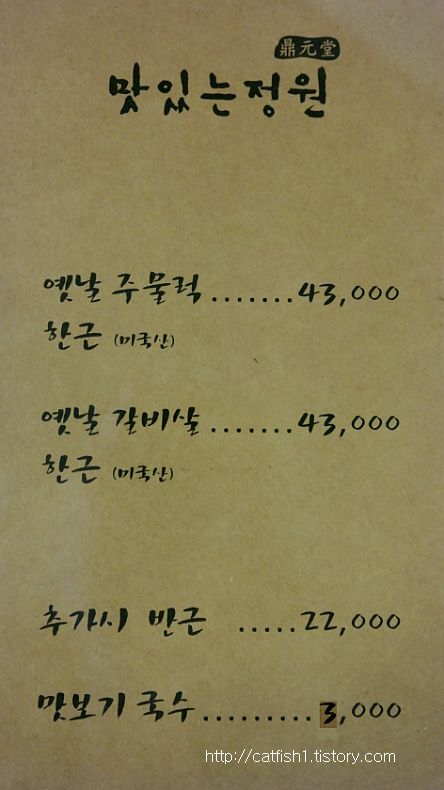 鼎元堂
맛있는정원
옛날 주물럭.......43,000
한근 (미국산)
옛날 갈비살.......43,000
한근 (미국산)
추가시 반근 .....22,000
맛보기국수.........3,000
http://catfish1.tistory.com